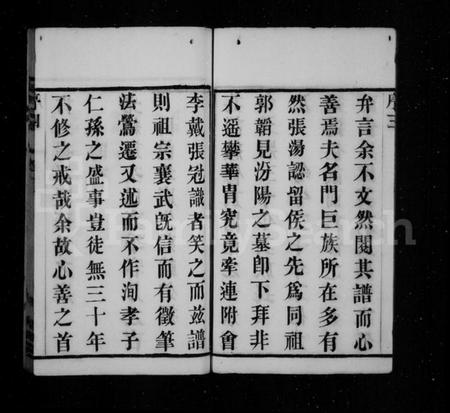 序三
弁言余不文然閱其譜而心
善焉夫名門巨族所在多有
然張湯認留侯之先爲同祖
郭韜見汾陽之墓卽下拜非
不遥攀華胄究竟牽連附會
李戴張冠識者笑之而茲譜
則祖宗襄武旣信而有徵筆
法鶯遷又述而不作洵孝子
仁孫之盛事豈徒無三十年
不修之戒哉余故心善之首
序四